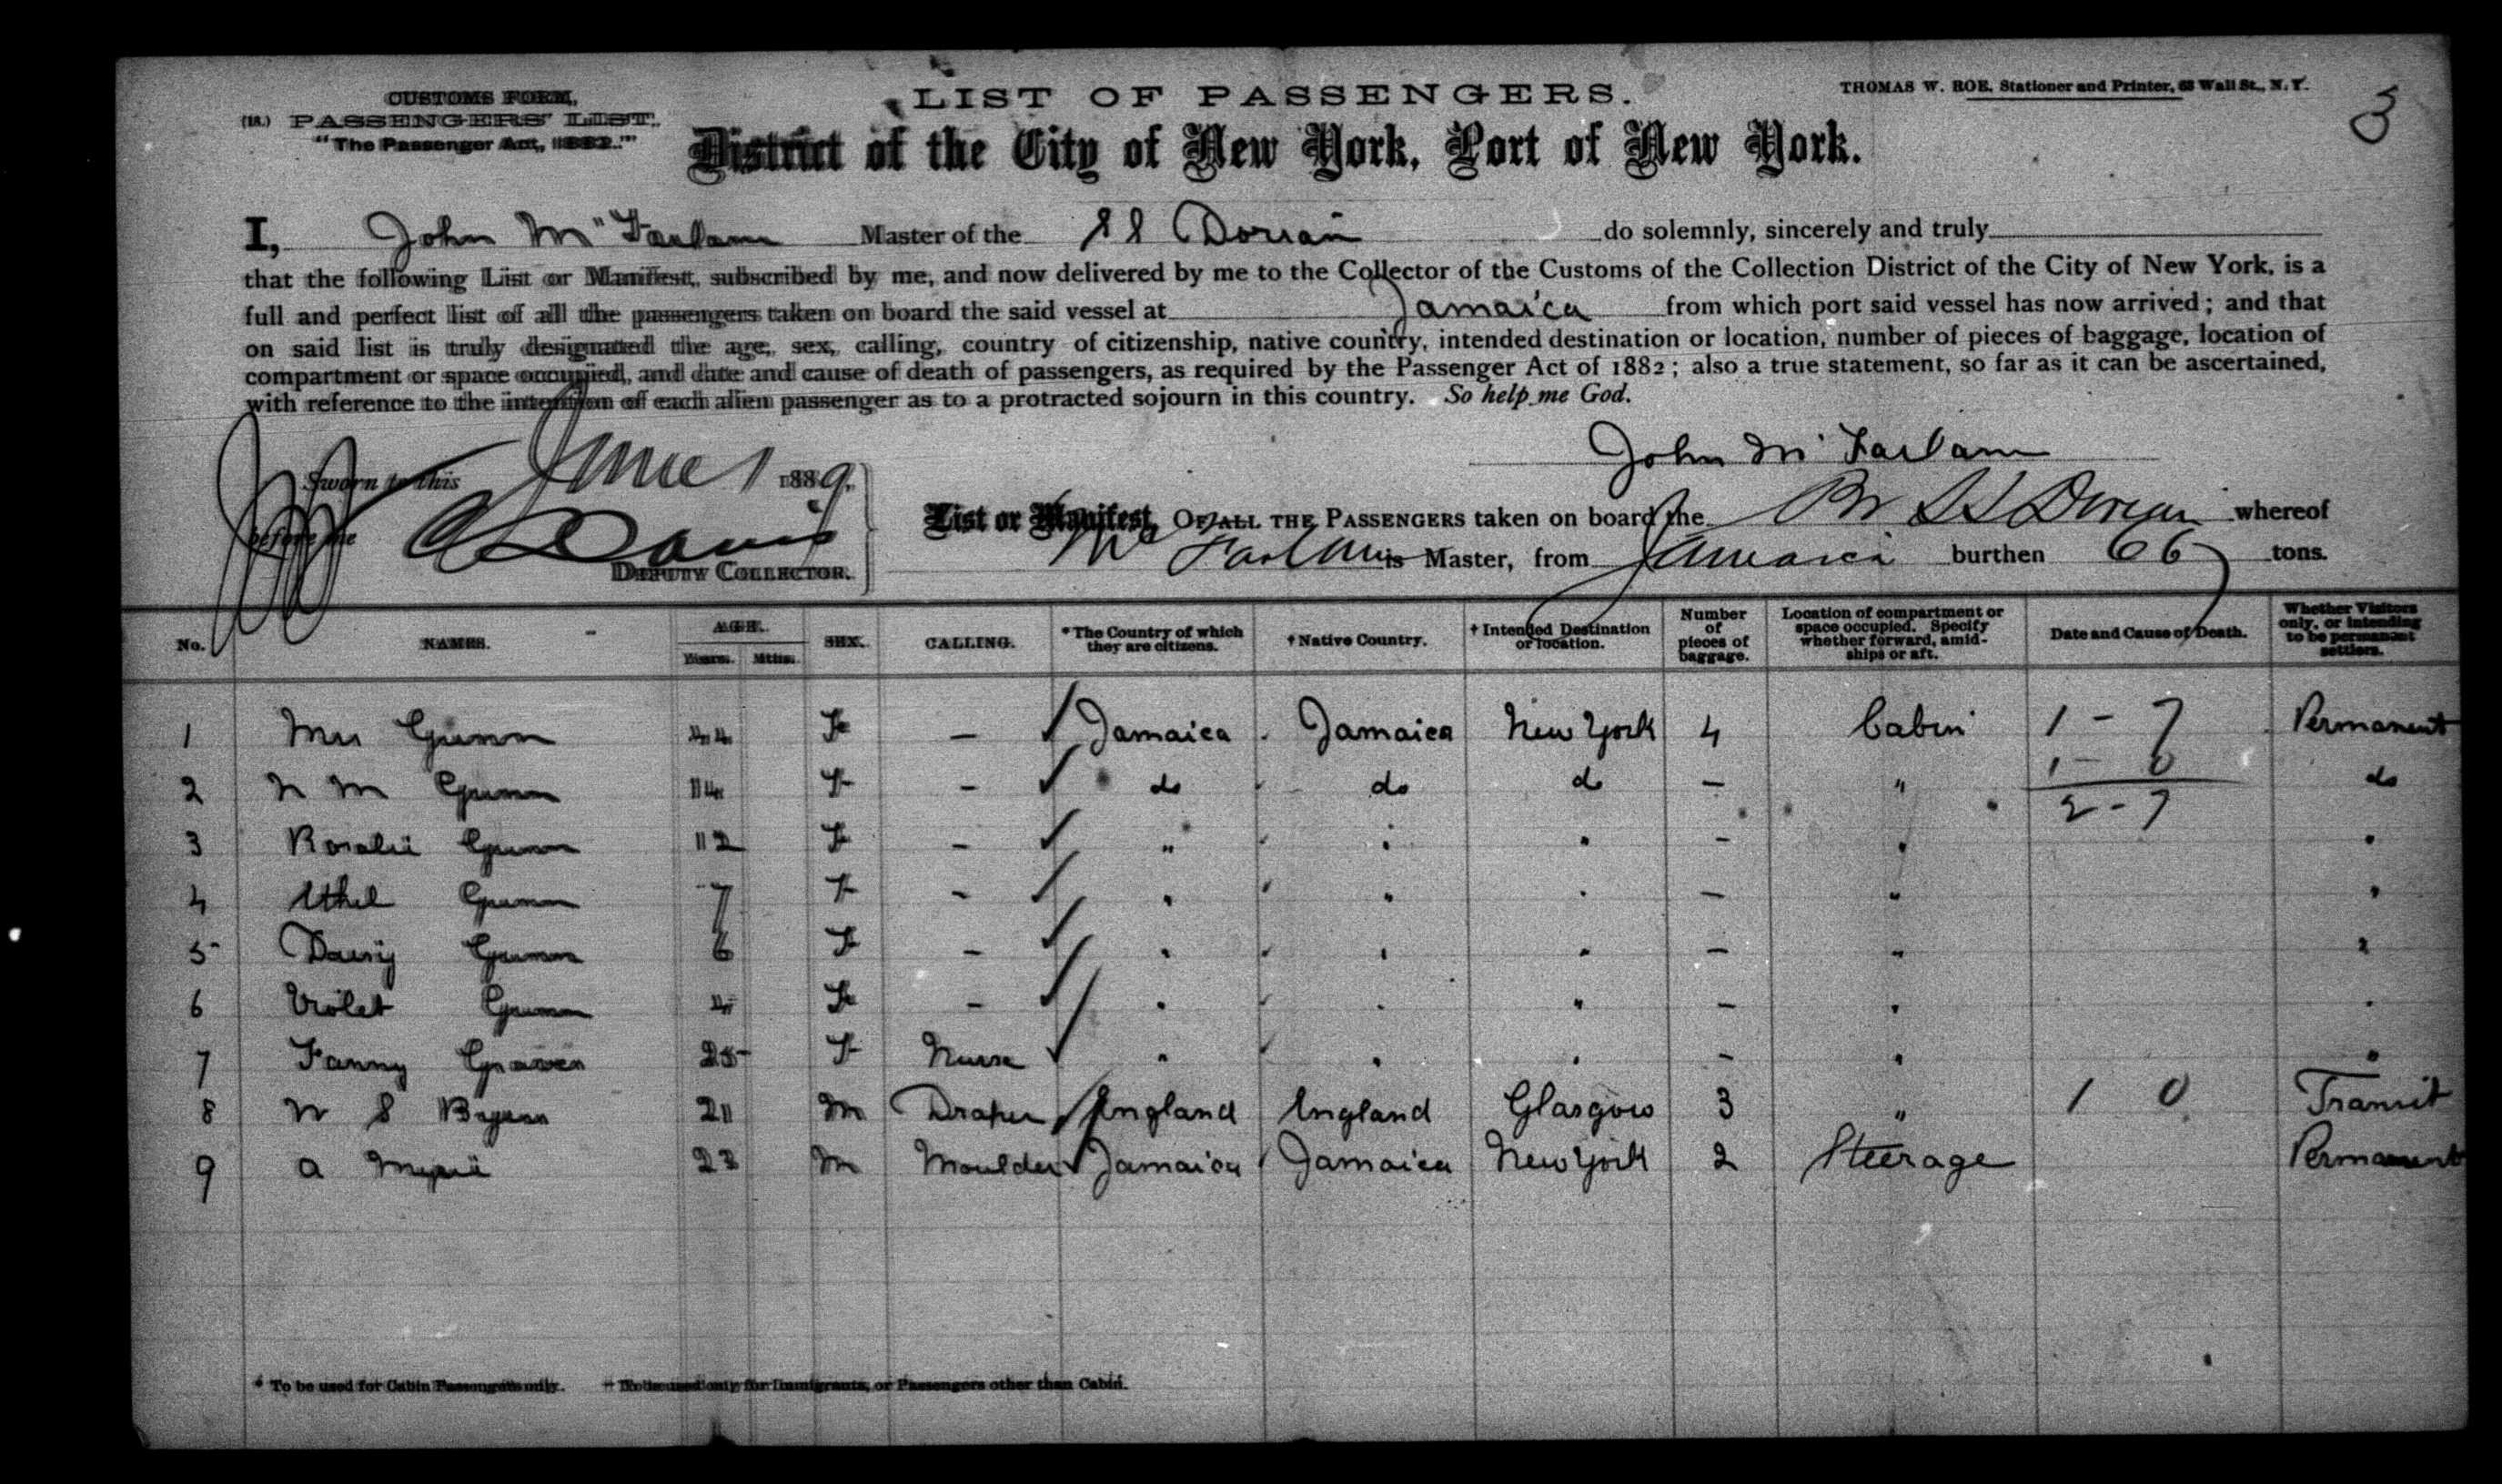 CUSTOMS FORM,
(18.) PASSENGERS' LIST.
"The Passenger Act, 1882."
LIST OF PASSENGERS.
THOMAS W. ROE, Stationer and Printer, 63 Wall St., N.Y.
3
District of the City of New York, Port of New York.
I, John Mc Farlane Master of the SS Dorian do solemnly, sincerely and truly
that the following List or Manifest, subscribed by me, and now delivered by me to the Collector of the Customs of the Collection District of the City of New York, is a
full and perfect list of all the passengers taken on board the said vessel at Jamaica from which port said vessel has now arrived; and that
on said list is truly designated the age, sex, calling, country of citizenship, native country, intended destination or location, number of pieces of baggage, location of
compartment or space occupied, and date and cause of death of passengers, as required by the Passenger Act of 1882; also a true statement, so far as it can be ascertained,
with reference to the intention of each alien passenger as to a protracted sojourn in this country. So help me God.
John Mc Farlane
Sworn to this June 1 1889.
before me Davis
DEPUTY COLLECTOR.
List or Manifest, OF ALL THE PASSENGERS taken on board the Br SS Dorian whereof
Mc Farlane is Master, from Jamaica burthen 667 tons.
No. NAMES. AGE. Years. Mths. SEX. CALLING. *The Country of which they are citizens. †Native Country. †Intended Destination or location. Number of pieces of baggage. Location of compartment or space occupied. Specify whether forward, amidships or aft. Date and Cause of Death. Whether Visitors only, or intending to be permanent settlers.
1 Mrs Gunn 44 F — Jamaica Jamaica New York 4 Cabin 1 - 7 Permanent
2 N M Gunn 14 F — do do do — " 1 - 0 do
2 - 7
3 Rosalie Gunn 12 F — " " " — " "
4 Ethel Gunn 7 F — " " " — " "
5 Daisy Gunn 6 F — " " " — " "
6 Violet Gunn 4 F — " " " — " "
7 Fanny Graves 25 F Nurse " " " — " "
8 W S 21 M Draper England England Glasgow 3 " 1 0 Transit
9 A 23 M Moulder Jamaica Jamaica New York 2 Steerage Permanent
* To be used for Cabin Passengers only. † To be used only for Immigrants, or Passengers other than Cabin.